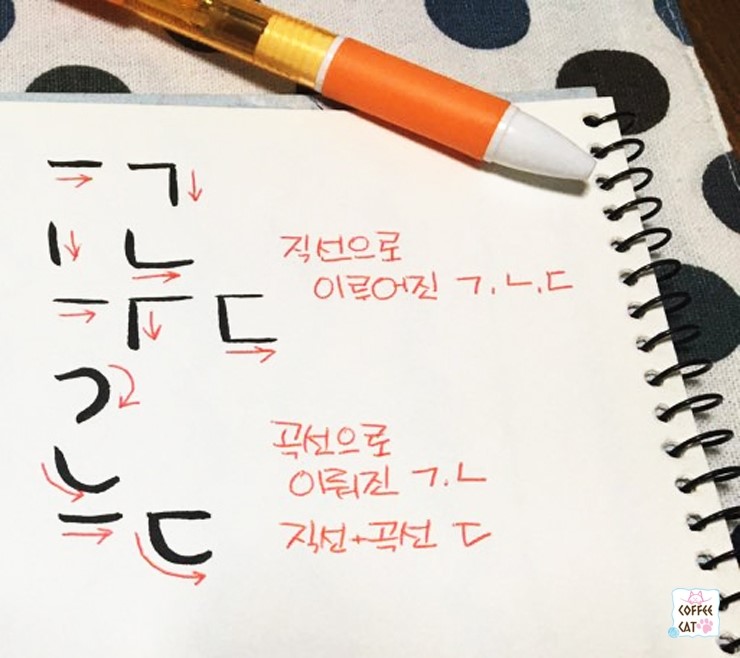 ㅡ ㄱ
ㅣ ㄴ
ㅡ ㄷ ㄷ
직선으로
이루어진 ㄱ.ㄴ.ㄷ
ㄱ
ㄴ
ㅡ ㄷ
곡선으로
이뤄진 ㄱ.ㄴ
직선+곡선 ㄷ
COFFEE
CAT